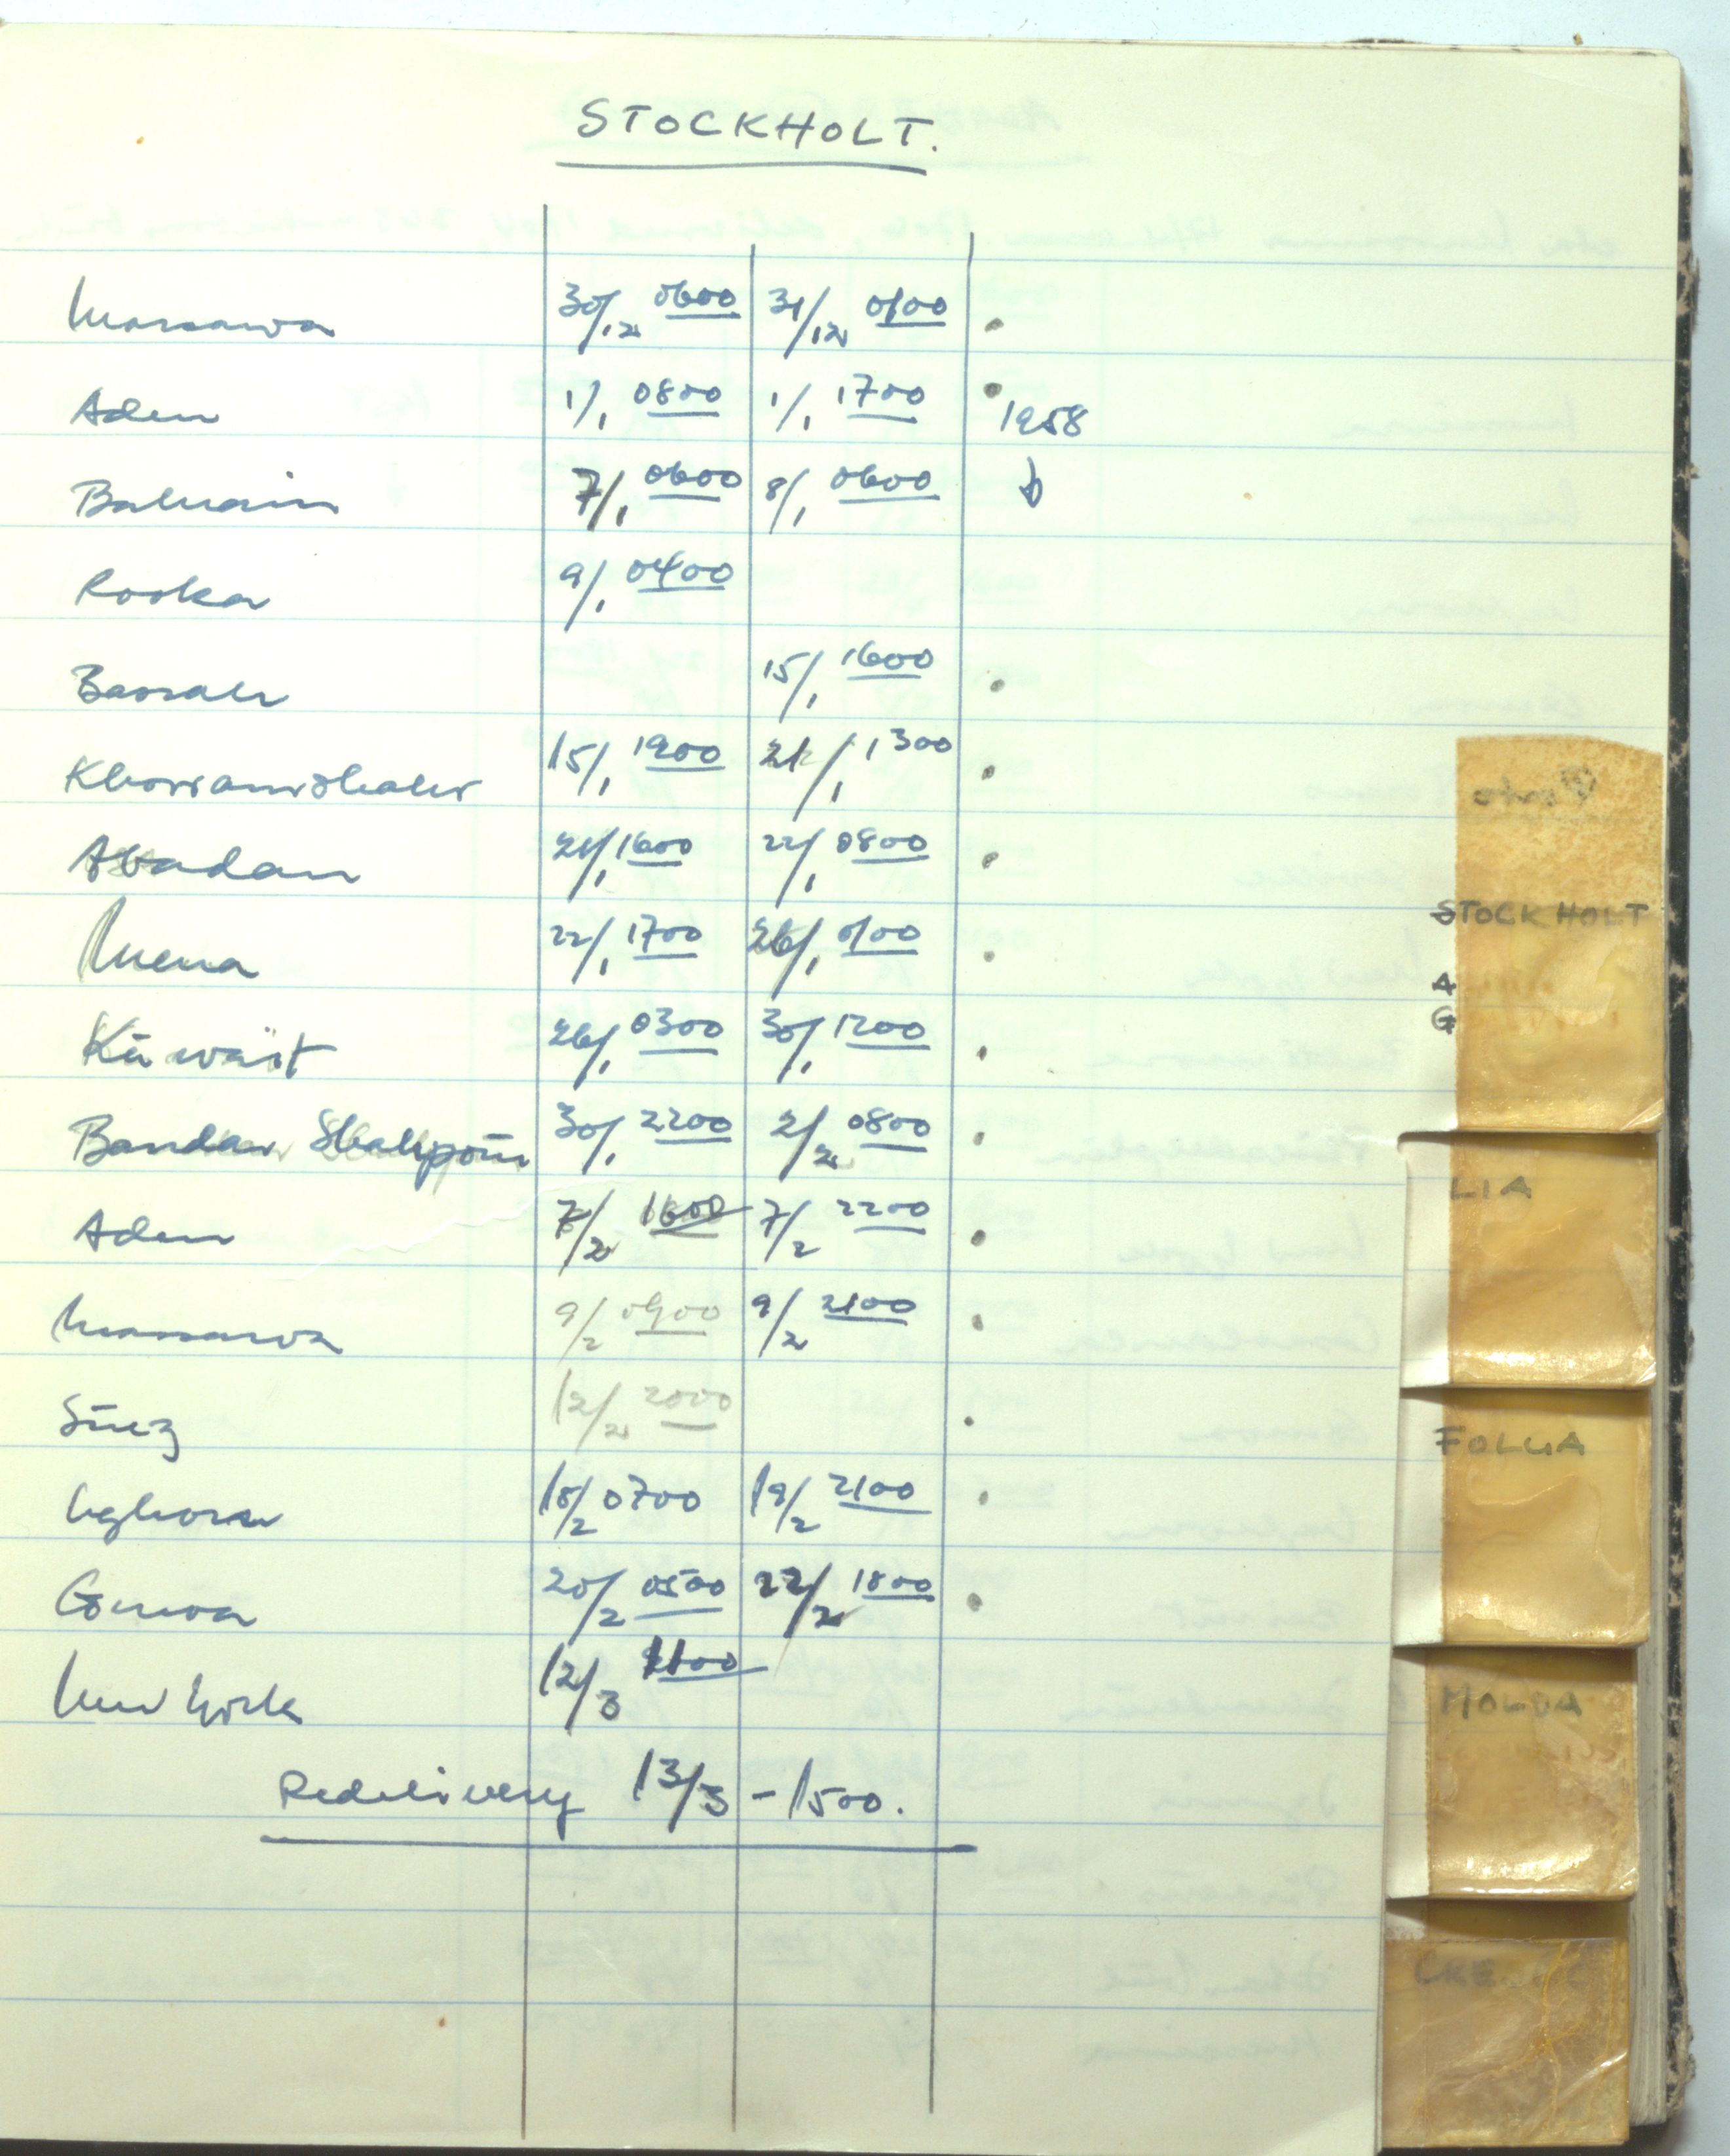 STOCKHOLT.
Massawa 30/12 0600 31/12 0100
Aden 1/1 0800 1/1 1700 1958
Bahrain 7/1 0600 8/1 0600 ↓
Rooka 9/1 0400
Basrah 15/1 1600
Khorramshahr 15/1 1900 21/1 1300
Abadan 21/1 1600 22/1 0800
Mena 22/1 1700 26/1 0100
Kuwait 26/1 0300 30/1 1200
Bandar Shahpour 30/1 2200 2/2 0800
Aden 7/2 1600 7/2 2200
Massawa 9/2 0900 9/2 2100
Suez 12/2 2000
Leghorn 18/2 0700 19/2 2100
Genoa 20/2 0500 22/2 1800
New York 12/3
Redelivery 13/3 - 1500.
STOCKHOLT
A
G
LIA
FOLGA
MOLDA